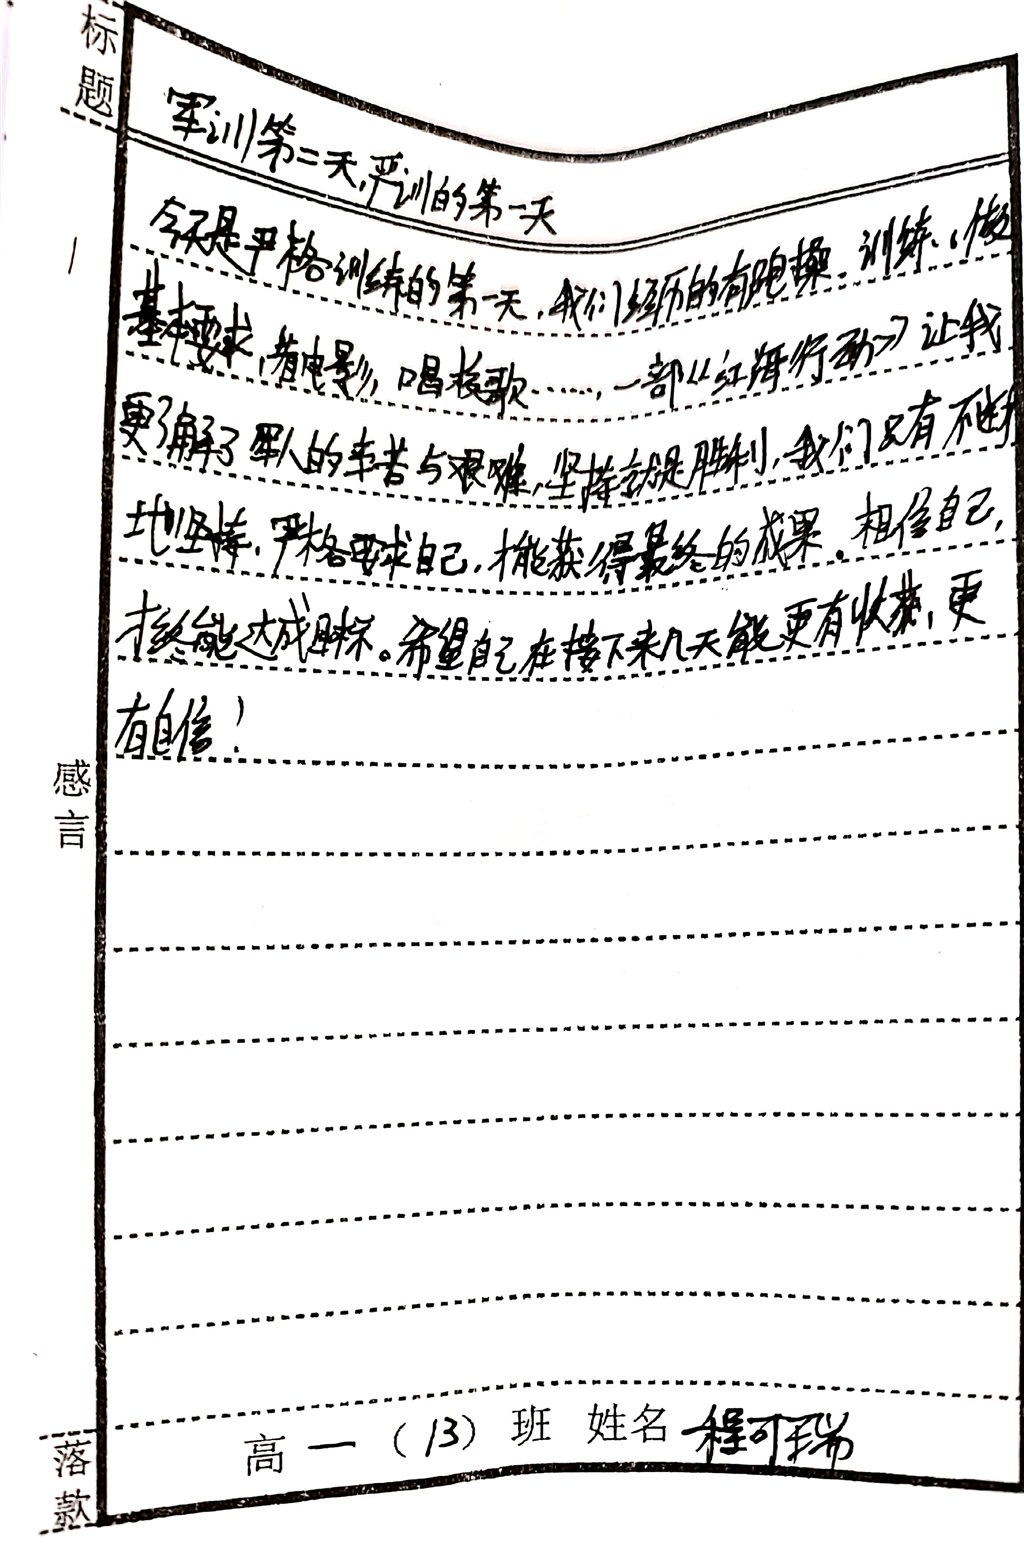 标题
军训第二天,严训的第一天
今天是严格训练的第一天,我们经历的有跑操、训练、做
基本要求,看电影,唱校歌……,一部《红海行动》让我
更了解了军人的辛苦与艰难,坚持就是胜利,我们只有不断
地坚持,严格要求自己,才能获得最终的成果。相信自己,
才终能达成目标。希望自己在接下来几天能更有收获,更
有自信!
感言
落款
高一(13)班 姓名 程可瑞